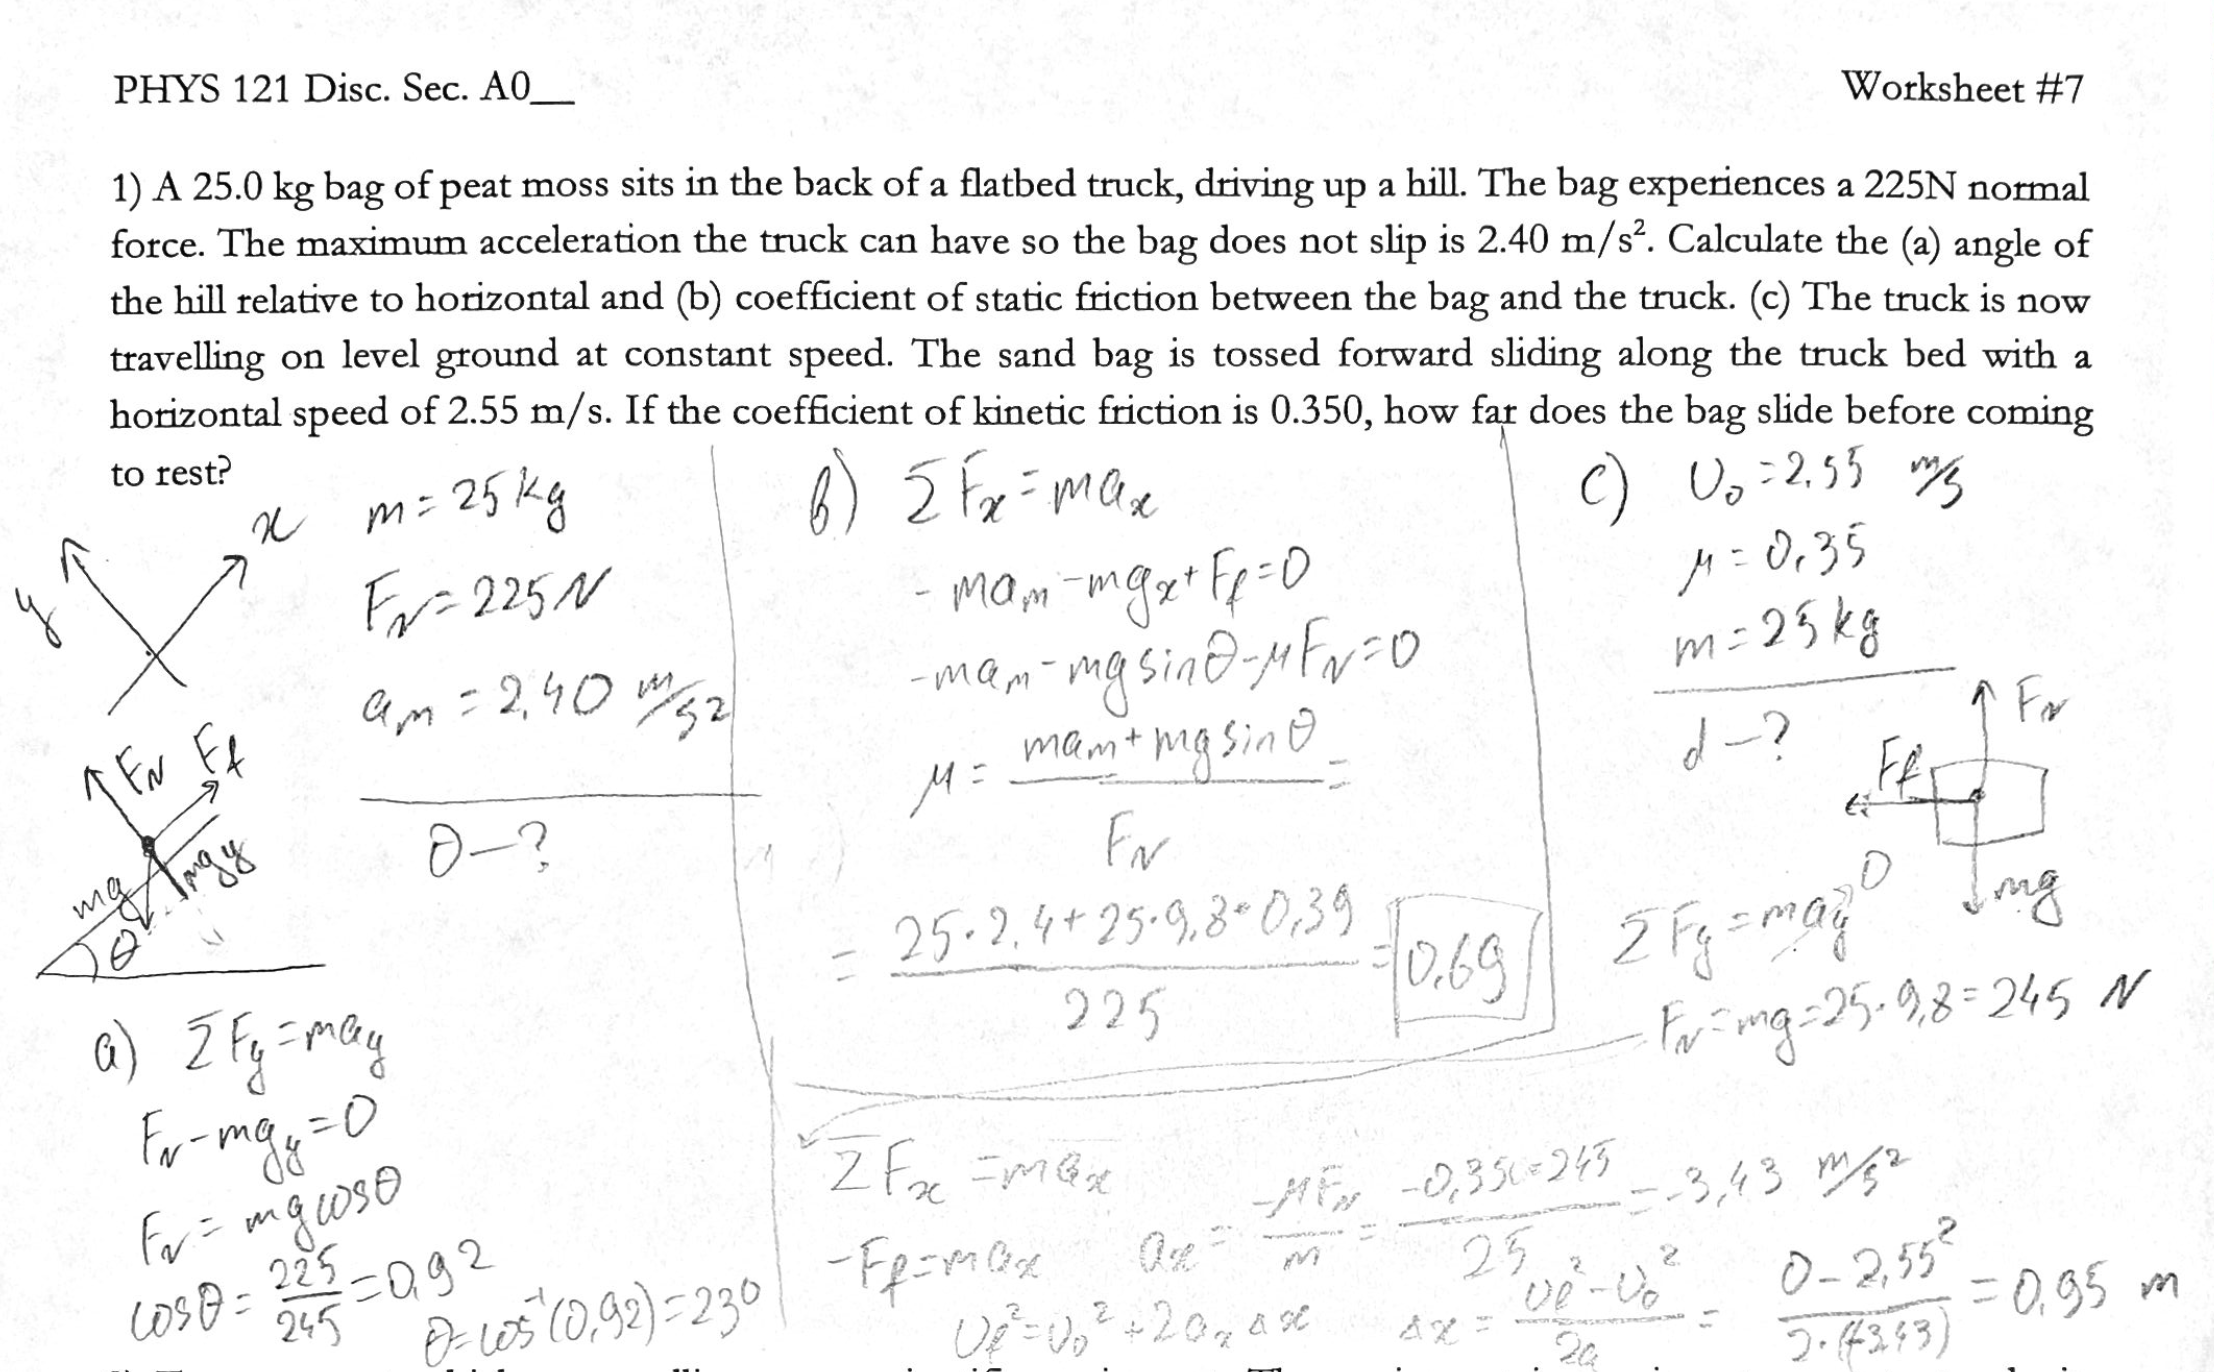 PHYS 121 Disc. Sec. A0__
Worksheet #7
1) A 25.0 kg bag of peat moss sits in the back of a flatbed truck, driving up a hill. The bag experiences a 225N normal
force. The maximum acceleration the truck can have so the bag does not slip is 2.40 m/s². Calculate the (a) angle of
the hill relative to horizontal and (b) coefficient of static friction between the bag and the truck. (c) The truck is now
travelling on level ground at constant speed. The sand bag is tossed forward sliding along the truck bed with a
horizontal speed of 2.55 m/s. If the coefficient of kinetic friction is 0.350, how far does the bag slide before coming
to rest?
y
x
m = 25 kg
F_N = 225 N
a_m = 2,40 m/s²
θ – ?
F_N
F_f
mg
mg_y
θ
a) ΣF_y = ma_y
F_N - mg_y = 0
F_N = mg cosθ
cosθ = 225/245 = 0,92
θ = cos⁻¹(0,92) = 23°
b) ΣF_x = ma_x
- ma_m - mg_x + F_f = 0
- ma_m - mg sinθ - μF_N = 0
μ = (ma_m + mg sinθ)/F_N =
= (25·2,4 + 25·9,8·0,39)/225 = 0,69
c) υ₀ = 2,55 m/s
μ = 0,35
m = 25 kg
d – ?
F_N
F_f
mg
ΣF_y = ma_y 0
F_N = mg = 25·9,8 = 245 N
ΣF_x = ma_x
- F_f = ma_x
a_x = -μF_N/m = -0,350·245/25 = -3,43 m/s²
υ_f² = υ₀² + 2a_xΔx
Δx = (υ_f² - υ₀²)/2a = (0 - 2,55²)/(2·(-3,43)) = 0,95 m